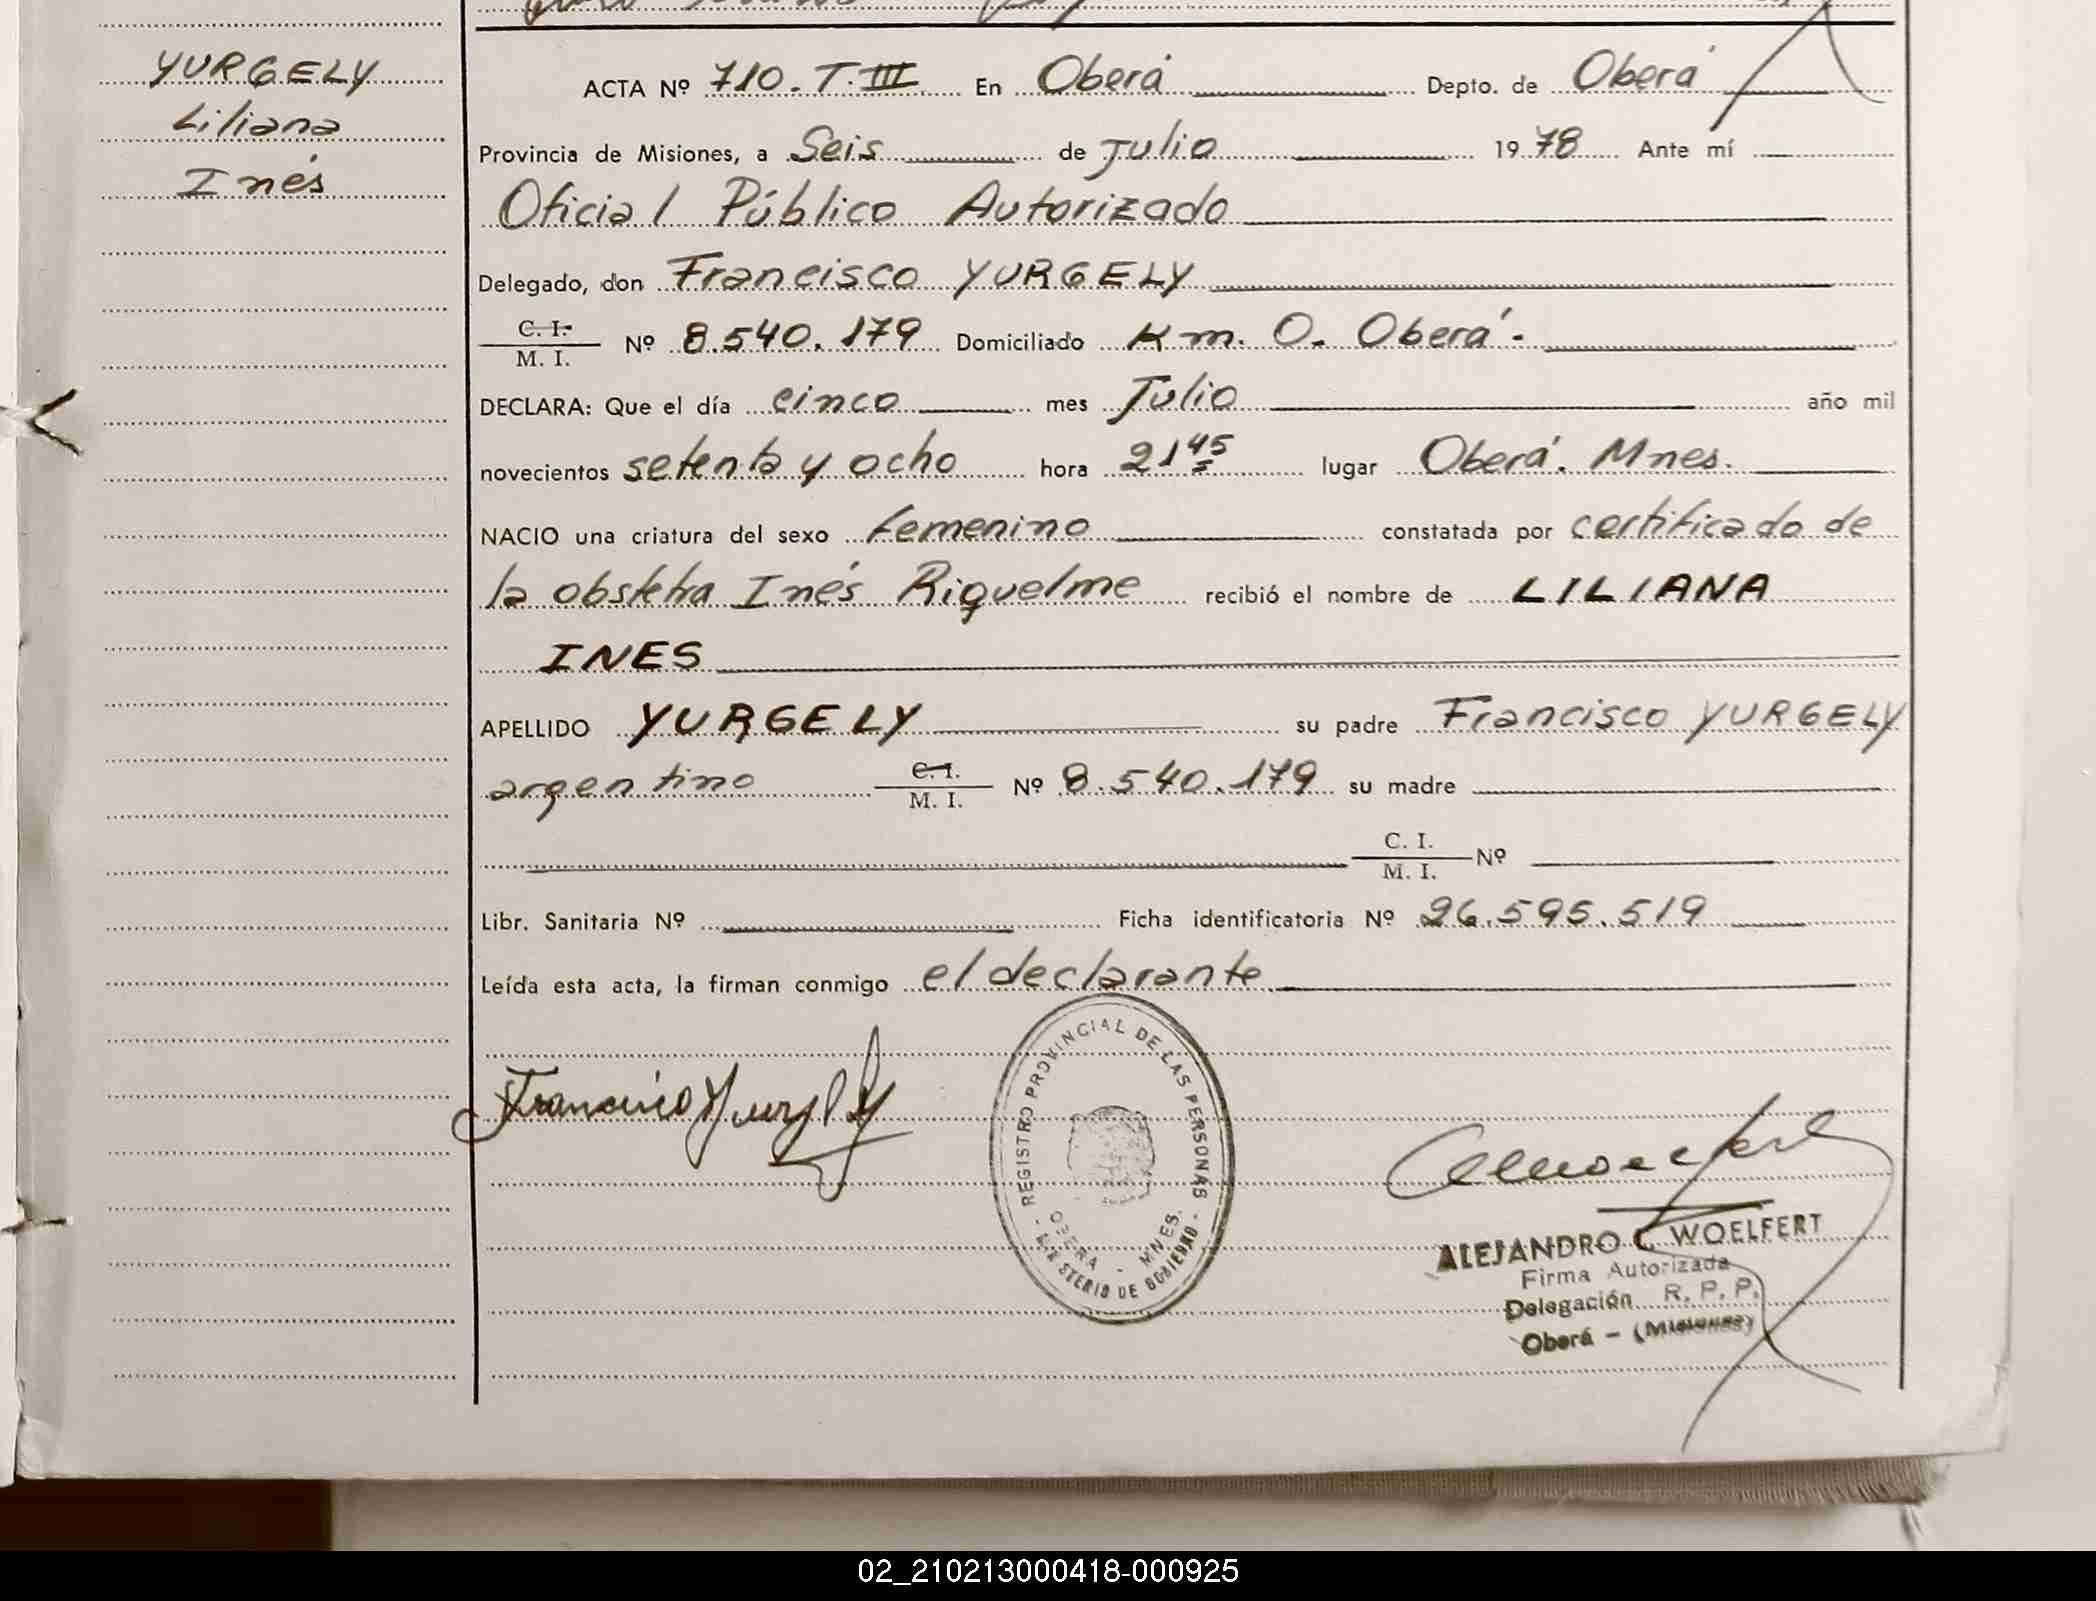 YURGELY
Liliana
Inés
ACTA Nº 710. T. III En Oberá Depto. de Oberá
Provincia de Misiones, a Seis de Julio 1978 Ante mí
Oficial Público Autorizado
Delegado, don Francisco YURGELY
C. I.
M. I. Nº 8.540.179 Domiciliado Km. O. Oberá.-
DECLARA: Que el día cinco mes Julio año mil
novecientos setenta y ocho hora 21 45 lugar Oberá. Mnes.
NACIO una criatura del sexo femenino constatada por certificado de
la obstetra Inés Riquelme recibió el nombre de LILIANA
INES
APELLIDO YURGELY su padre Francisco YURGELY
argentino C. I. M. I. Nº 8.540.179 su madre
C. I.
M. I. Nº
Libr. Sanitaria Nº Ficha identificatoria Nº 26.595.519
Leída esta acta, la firman conmigo el declarante
Francisco Yurgely
REGISTRO PROVINCIAL DE LAS PERSONAS
OBERA - MNES.
- MINISTERIO DE GOBIERNO -
ALEJANDRO C. WOELFERT
Firma Autorizada
Delegación R. P. P.
Oberá - (Misiones)
02_210213000418-000925